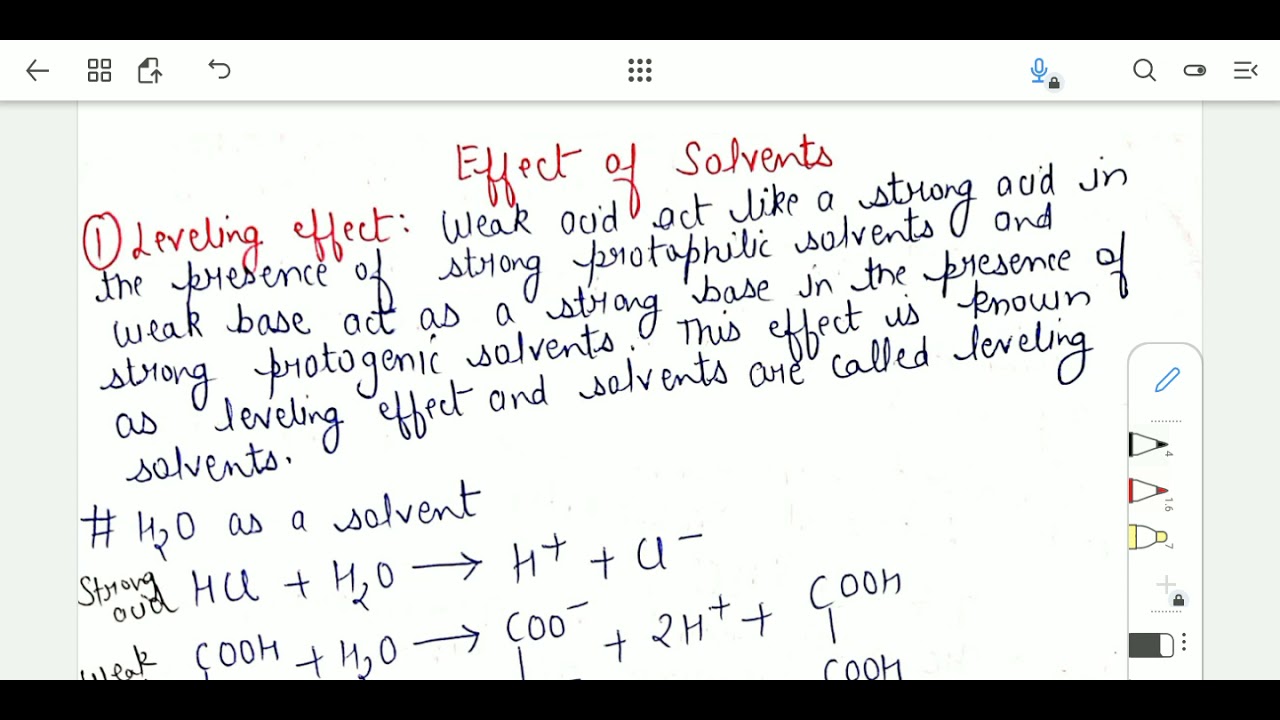 Effect of Solvents
① Leveling effect: Weak acid act like a strong acid in
the presence of strong protaphilic solvents and
weak base act as a strong base in the presence of
strong protogenic solvents. This effect is known
as leveling effect and solvents are called leveling
solvents.
# H₂O as a solvent
Strong acid HCl + H₂O → H⁺ + Cl⁻
Weak COOH + H₂O → COO⁻ + 2H⁺ + COOH
COOH
4
1.6
7